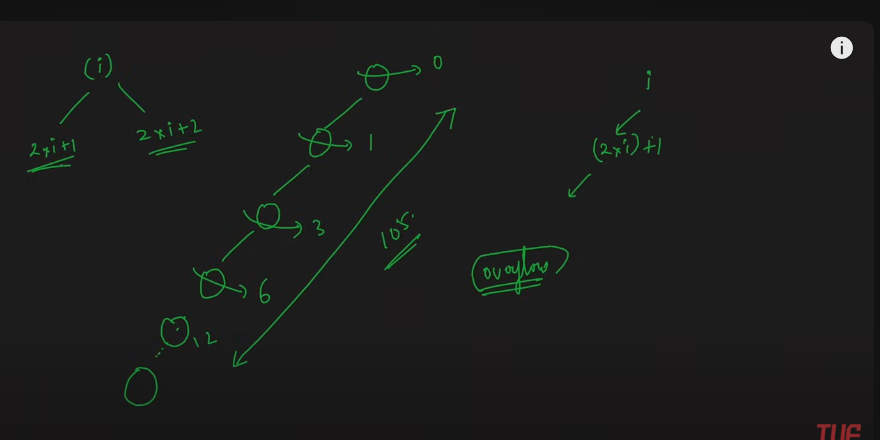 (i)
2xi+1
2xi+2
0
1
3
6
12
10^5
i
(2xi)+1
overflow
i
TUF